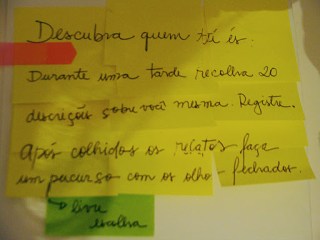 Descubra quem tú és.
Durante uma tarde recolha 20
descrições sobre você mesma. Registre.
Após colhidos os relatos faça
um pacurso com os olhos fechados.
livre
escolha